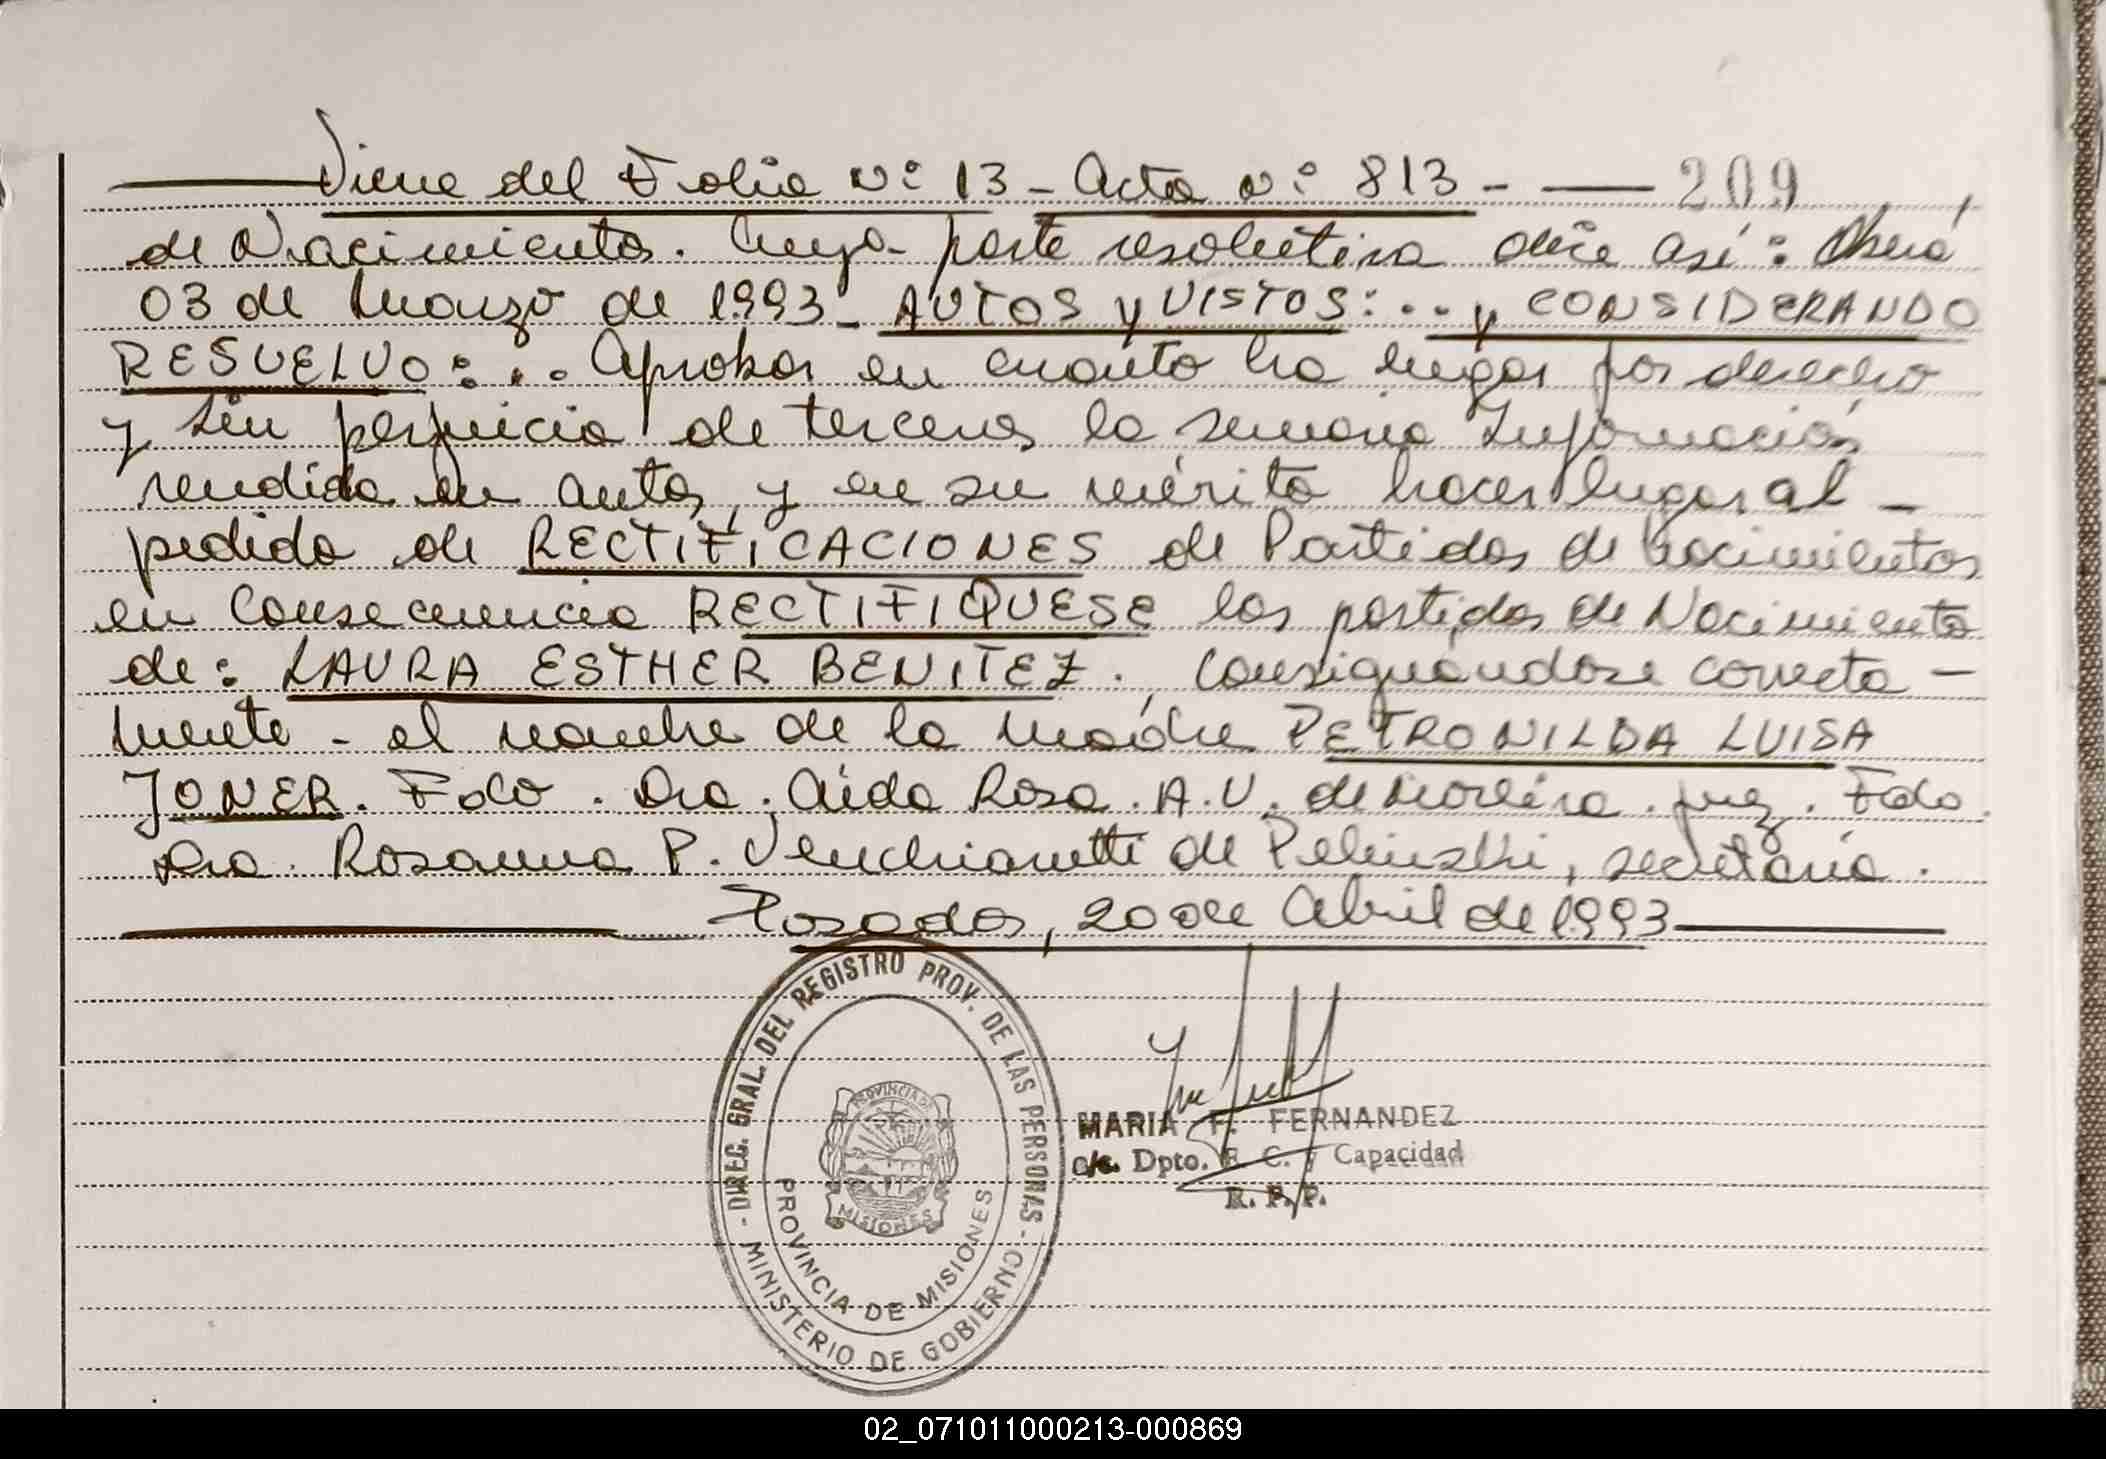 Viene del Folio Nº 13 - Acta Nº 813 - 209
de Nacimientos. Cuya parte resolutiva dice así: Oberá
03 de Marzo de 1.993 - AUTOS y VISTOS: .. y CONSIDERANDO
RESUELVO: .. Aprobar en cuanto ha lugar por derecho
y sin perjuicio de terceros la sumaria Información
rendida en autos, y en su mérito hacer lugar al -
pedido de RECTIFICACIONES de Partidas de Nacimientos
en Consecuencia RECTIFIQUESE las partidas de Nacimiento
de: LAURA ESTHER BENITEZ. Consignándose correcta -
mente - el nombre de la Madre PETRONILDA LUISA
JONER. Fdo. Dra. Aída Rosa. A.V. de Moreira. Juez. Fdo.
Dra. Rosanna P. Venchiarutti de Pelinski, secretaria.
Posadas, 20 de Abril de 1.993
DIREC. GRAL. DEL REGISTRO PROV. DE LAS PERSONAS
MINISTERIO DE GOBIERNO
PROVINCIA DE MISIONES
PROVINCIA DE
MISIONES
MARIA F. FERNANDEZ
a/c. Dpto. E. C. y Capacidad
R. P. P.
02_071011000213-000869